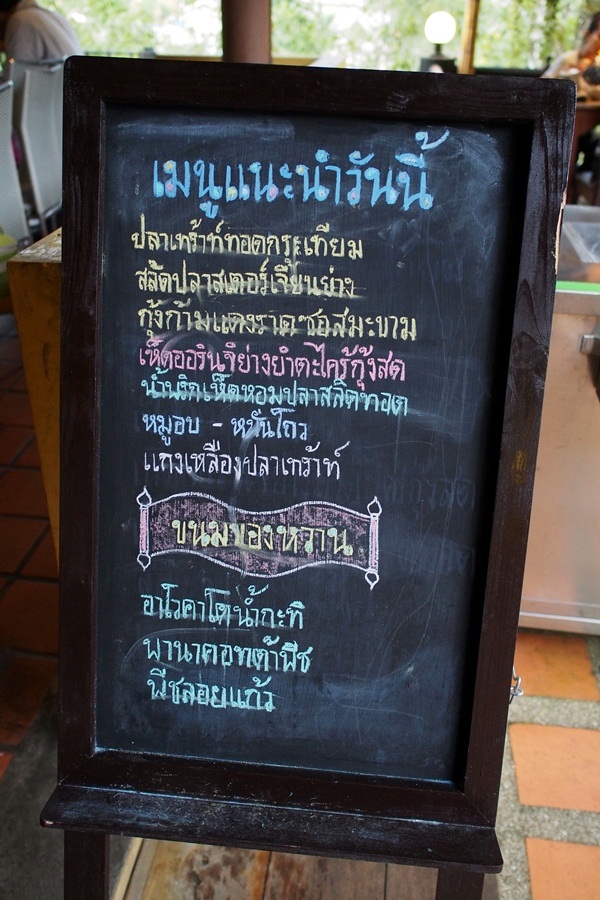 เมนูแนะนำวันนี้
ปลาเทร้าท์ทอดกระเทียม
สลัดปลาสเตอร์เจี้ยนย่าง
กุ้งก้ามแดงราดซอสมะขาม
เห็ดออรินจิย่างยำตะไคร้กุ้งสด
น้ำพริกเห็ดหอมปลาสลิดทอด
หมูอบ - หมั่นโถว
แกงเหลืองปลาเทร้าท์
ขนมของหวาน
อโวคาโดน้ำกะทิ
พานาคอทต้าพีช
พีชลอยแก้ว